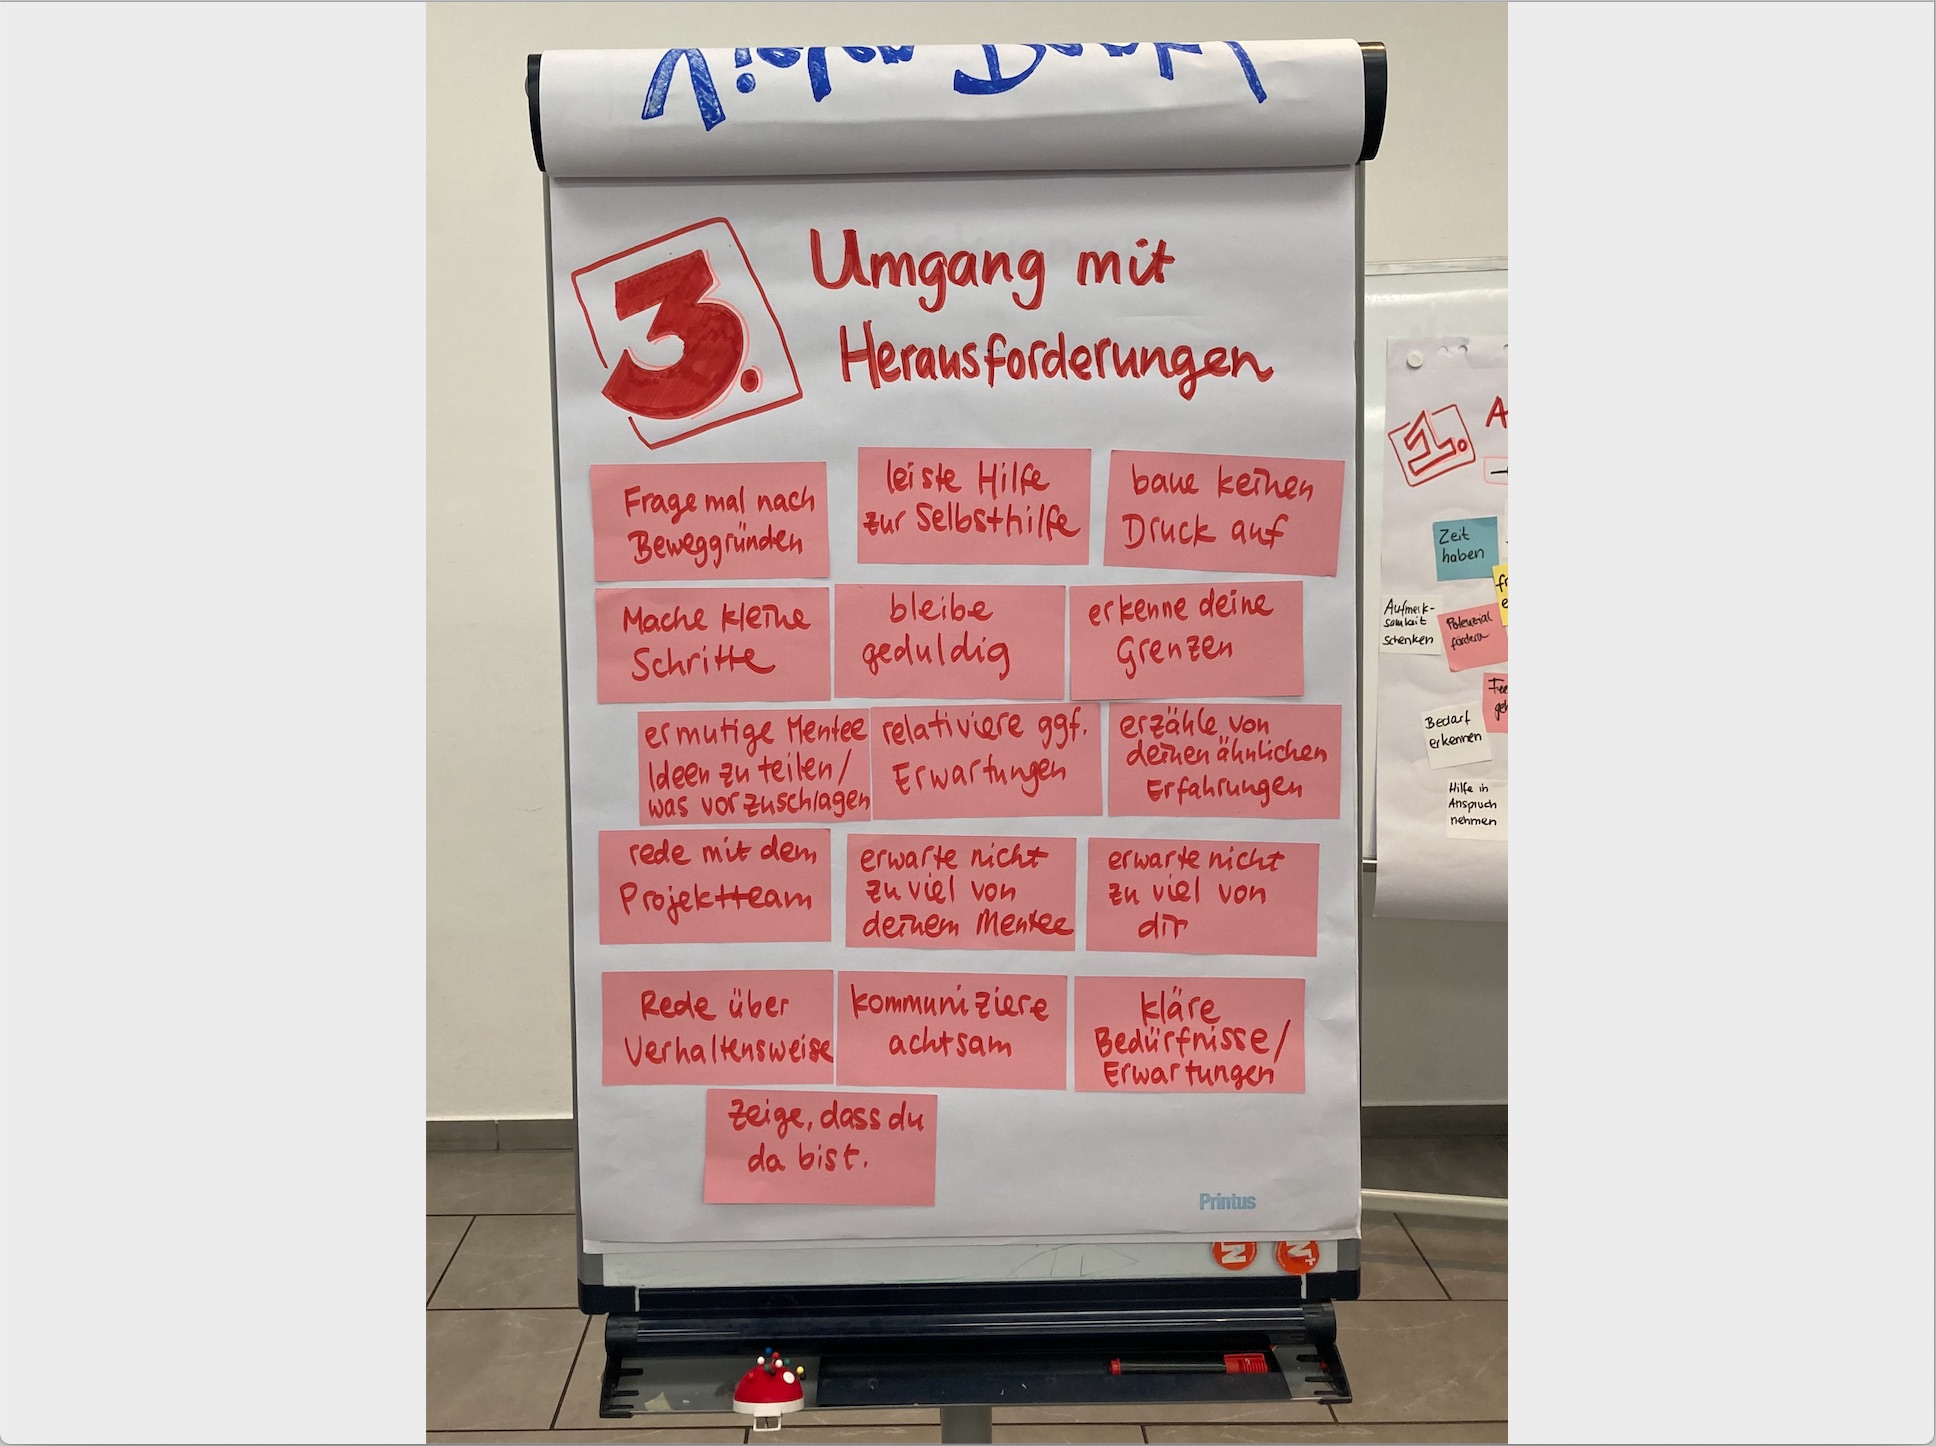 Vielen Dank
3.
Umgang mit
Herausforderungen
Frage mal nach
Beweggründen
leiste Hilfe
zur Selbsthilfe
baue keinen
Druck auf
Mache kleine
Schritte
bleibe
geduldig
erkenne deine
Grenzen
ermutige Mentee
Ideen zu teilen/
was vorzuschlagen
relativiere ggf.
Erwartungen
erzähle von
deinen ähnlichen
Erfahrungen
rede mit dem
Projektteam
erwarte nicht
zu viel von
deinem Mentee
erwarte nicht
zu viel von
dir
Rede über
Verhaltensweise
kommuniziere
achtsam
kläre
Bedürfnisse/
Erwartungen
Zeige, dass du
da bist.
Printus
1.
Zeit
haben
Aufmerk-
samkeit
schenken
Potenzial
fördern
Bedarf
erkennen
Hilfe in
Anspruch
nehmen